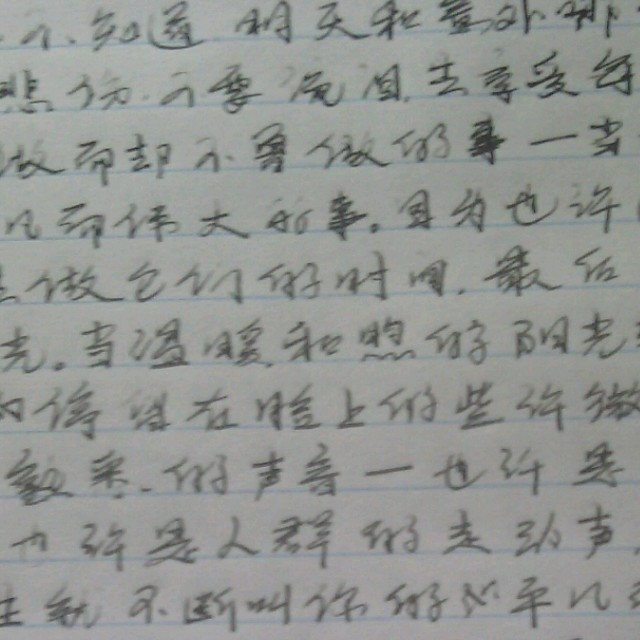 不知道明天和意外哪
悲伤.不要浪间.去享受每
做而却不曾做的事一当
凡而伟大的事。因为也许
做它们的时间.最后
光.当温暖和煦的阳光
的停驻在脸上的些许微
的声音一也许是
也许是人群的走动声
不断叫你的从平凡